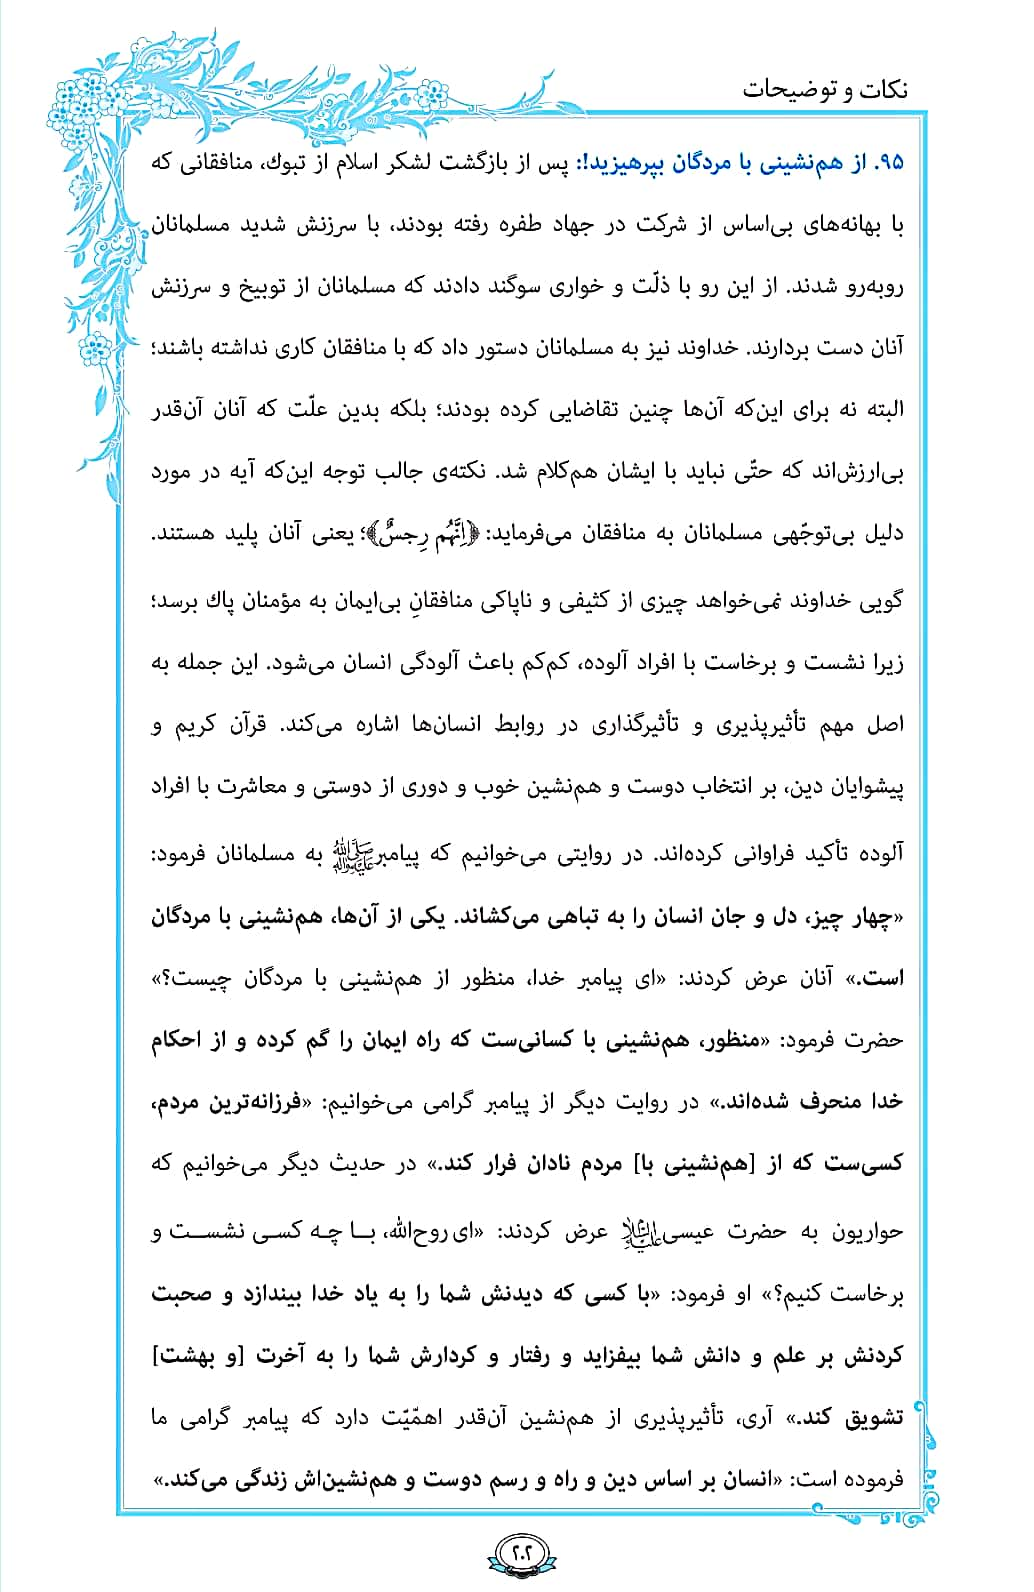 نکات و توضیحات
۹۵. از هم‌نشینی با مردگان بپرهیزید!: پس از بازگشت لشکر اسلام از تبوك، منافقانی که
با بهانه‌های بی‌اساس از شرکت در جهاد طفره رفته بودند، با سرزنش شدید مسلمانان
روبه‌رو شدند. از این رو با ذلّت و خواری سوگند دادند که مسلمانان از توبیخ و سرزنش
آنان دست بردارند. خداوند نیز به مسلمانان دستور داد که با منافقان کاری نداشته باشند؛
البته نه برای این‌که آن‌ها چنین تقاضایی کرده بودند؛ بلکه بدین علّت که آنان آن‌قدر
بی‌ارزش‌اند که حتّی نباید با ایشان هم‌کلام شد. نکته‌ی جالب توجه این‌که آیه در مورد
دلیل بی‌توجّهی مسلمانان به منافقان می‌فرماید: ﴿اِنَّهُم رِجسٌ﴾؛ یعنی آنان پلید هستند.
گویی خداوند نمی‌خواهد چیزی از کثیفی و ناپاکی منافقانِ بی‌ایمان به مؤمنان پاك برسد؛
زیرا نشست و برخاست با افراد آلوده، کم‌کم باعث آلودگی انسان می‌شود. این جمله به
اصل مهم تأثیرپذیری و تأثیرگذاری در روابط انسان‌ها اشاره می‌کند. قرآن کریم و
پیشوایان دین، بر انتخاب دوست و هم‌نشین خوب و دوری از دوستی و معاشرت با افراد
آلوده تأکید فراوانی کرده‌اند. در روایتی می‌خوانیم که پیامبر صَلَّى اللهُ عَلَيْهِ وَآلِهِ به مسلمانان فرمود:
«چهار چیز، دل و جان انسان را به تباهی می‌کشاند. یکی از آن‌ها، هم‌نشینی با مردگان
است.» آنان عرض کردند: «ای پیامبر خدا، منظور از هم‌نشینی با مردگان چیست؟»
حضرت فرمود: «منظور، هم‌نشینی با کسانی‌ست که راه ایمان را گم کرده و از احکام
خدا منحرف شده‌اند.» در روایت دیگر از پیامبر گرامی می‌خوانیم: «فرزانه‌ترین مردم،
کسی‌ست که از [هم‌نشینی با] مردم نادان فرار کند.» در حدیث دیگر می‌خوانیم که
حواریون به حضرت عیسی عَلَيْهِ السَّلَام عرض کردند: «ای روح‌الله، بــا چـه کسـی نشسـت و
برخاست کنیم؟» او فرمود: «با کسی که دیدنش شما را به یاد خدا بیندازد و صحبت
کردنش بر علم و دانش شما بیفزاید و رفتار و کردارش شما را به آخرت [و بهشت]
تشویق کند.» آری، تأثیرپذیری از هم‌نشین آن‌قدر اهمّیّت دارد که پیامبر گرامی ما
فرموده است: «انسان بر اساس دین و راه و رسم دوست و هم‌نشین‌اش زندگی می‌کند.»
۲۰۲